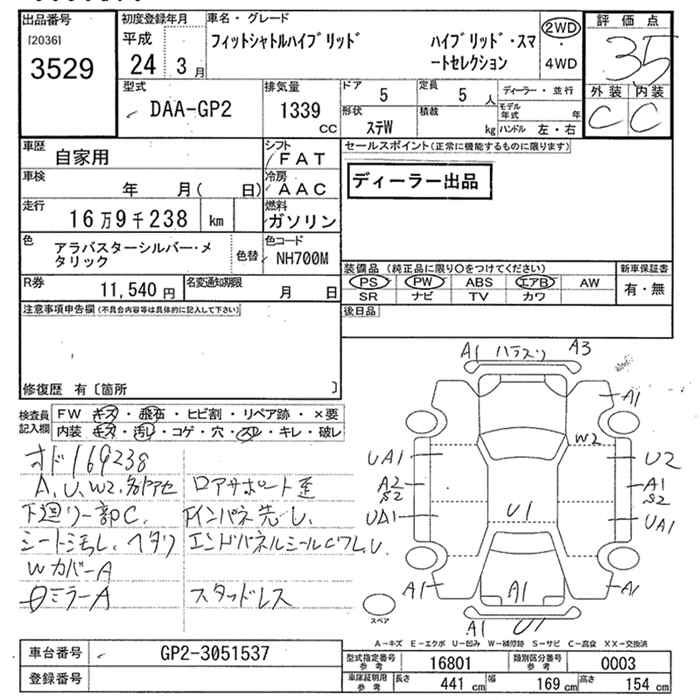 出品番号
[2036]
3529
初度登録年月
平成
24年 3月
車名・グレード
フィットシャトルハイブリッド ハイブリッド・スマートセレクション
2WD
・
4WD
評価点
3.5
外装 内装
C C
型式
DAA-GP2
排気量
1339
cc
ドア 5
定員 5 人
形状
ステW
積載
kg
ディーラー・並行
モデル年式 年
ハンドル 左・右
車歴
自家用
シフト
FAT
車検
年 月( 日)
冷房
AAC
走行
16万9千238 km
燃料
ガソリン
色
アラバスターシルバー・メタリック
色替
色コード
NH700M
セールスポイント(正常に機能するものに限ります)
ディーラー出品
R券
11,540 円
名変通知期限
月 日
装備品 (純正品に限り○をつけてください)
PS PW ABS エアB AW
SR ナビ TV カワ
新車保証書
有・無
注意事項申告欄(不具合内容等は具体的に記入して下さい)
後日品
修復歴 有〔箇所 〕
検査員記入欄
FW キズ・飛石・ヒビ割・リペア跡・×要
内装 キズ・汚レ・コゲ・穴・スレ・キレ・破レ
オド169238
A、U、W2、各所アセ ロアサポート歪
下廻リ一部C、
シート汚れ、ヘタリ
WカバーA
ミラーA スタッドレス
A1 A3
A1
W2
UA1 U2
A2 A1
S2 S2
UA1 UA1
U1
A1 A1 A1
A1 U1
スペア
A-キズ E-エクボ U-凹み W-補修跡 S-サビ C-腐食 XX-交換済
車台番号
GP2-3051537
登録番号
型式指定番号
参考
16801
類別区分番号
参考
0003
車庫証明用
参考
長さ 441 cm 幅 169 cm 高さ 154 cm